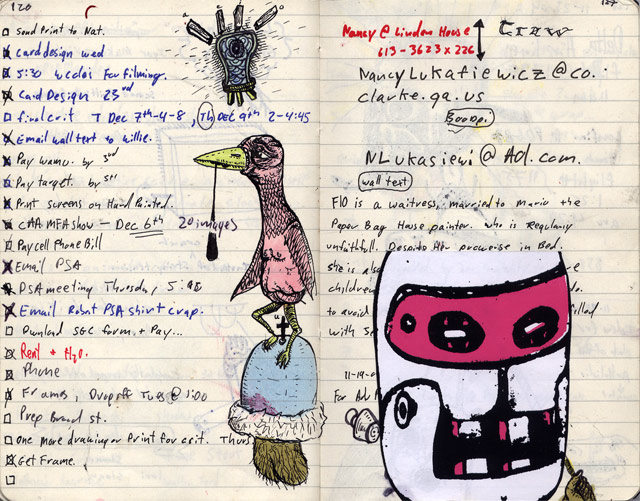 120
Send Print to Nat.
card design wed
5:30 wedds For filming.
Card Design 23rd
final crit T Dec 7th-4-8, Th Dec 9th 2-4:45
Email wall text to Willie.
Pay wamu. by 3rd
Pay target. by 5th
Print screens on Hand Painted.
CAA MFA show — Dec 6th 20 images
Pay cell Phone Bill
Email PSA
PSA meeting Thursday, 5:
Email Robot PSA shirt crap.
Download SGC form. + Pay...
Rent + H2O.
Phone
Frames, Dropoff Tues @ 1:00
Prep Broad st.
one more drawing or Print for crit. Thurs
Get Frame.
Nancy @ Linden House
613-3623 x 226
NancyLukasiewicz@co.
clarke.ga.us
NLukasiewi@Aol.com.
wall text
Flo is a waitress, married to Mario the
Paper Bag House painter. who is Regularly
unfaithfull. Despite her prowess in Bed.
she is also
children
to avoid
with
11-19-
For